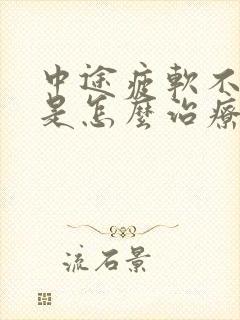 中途疲軟不
是怎麼治療
流石景